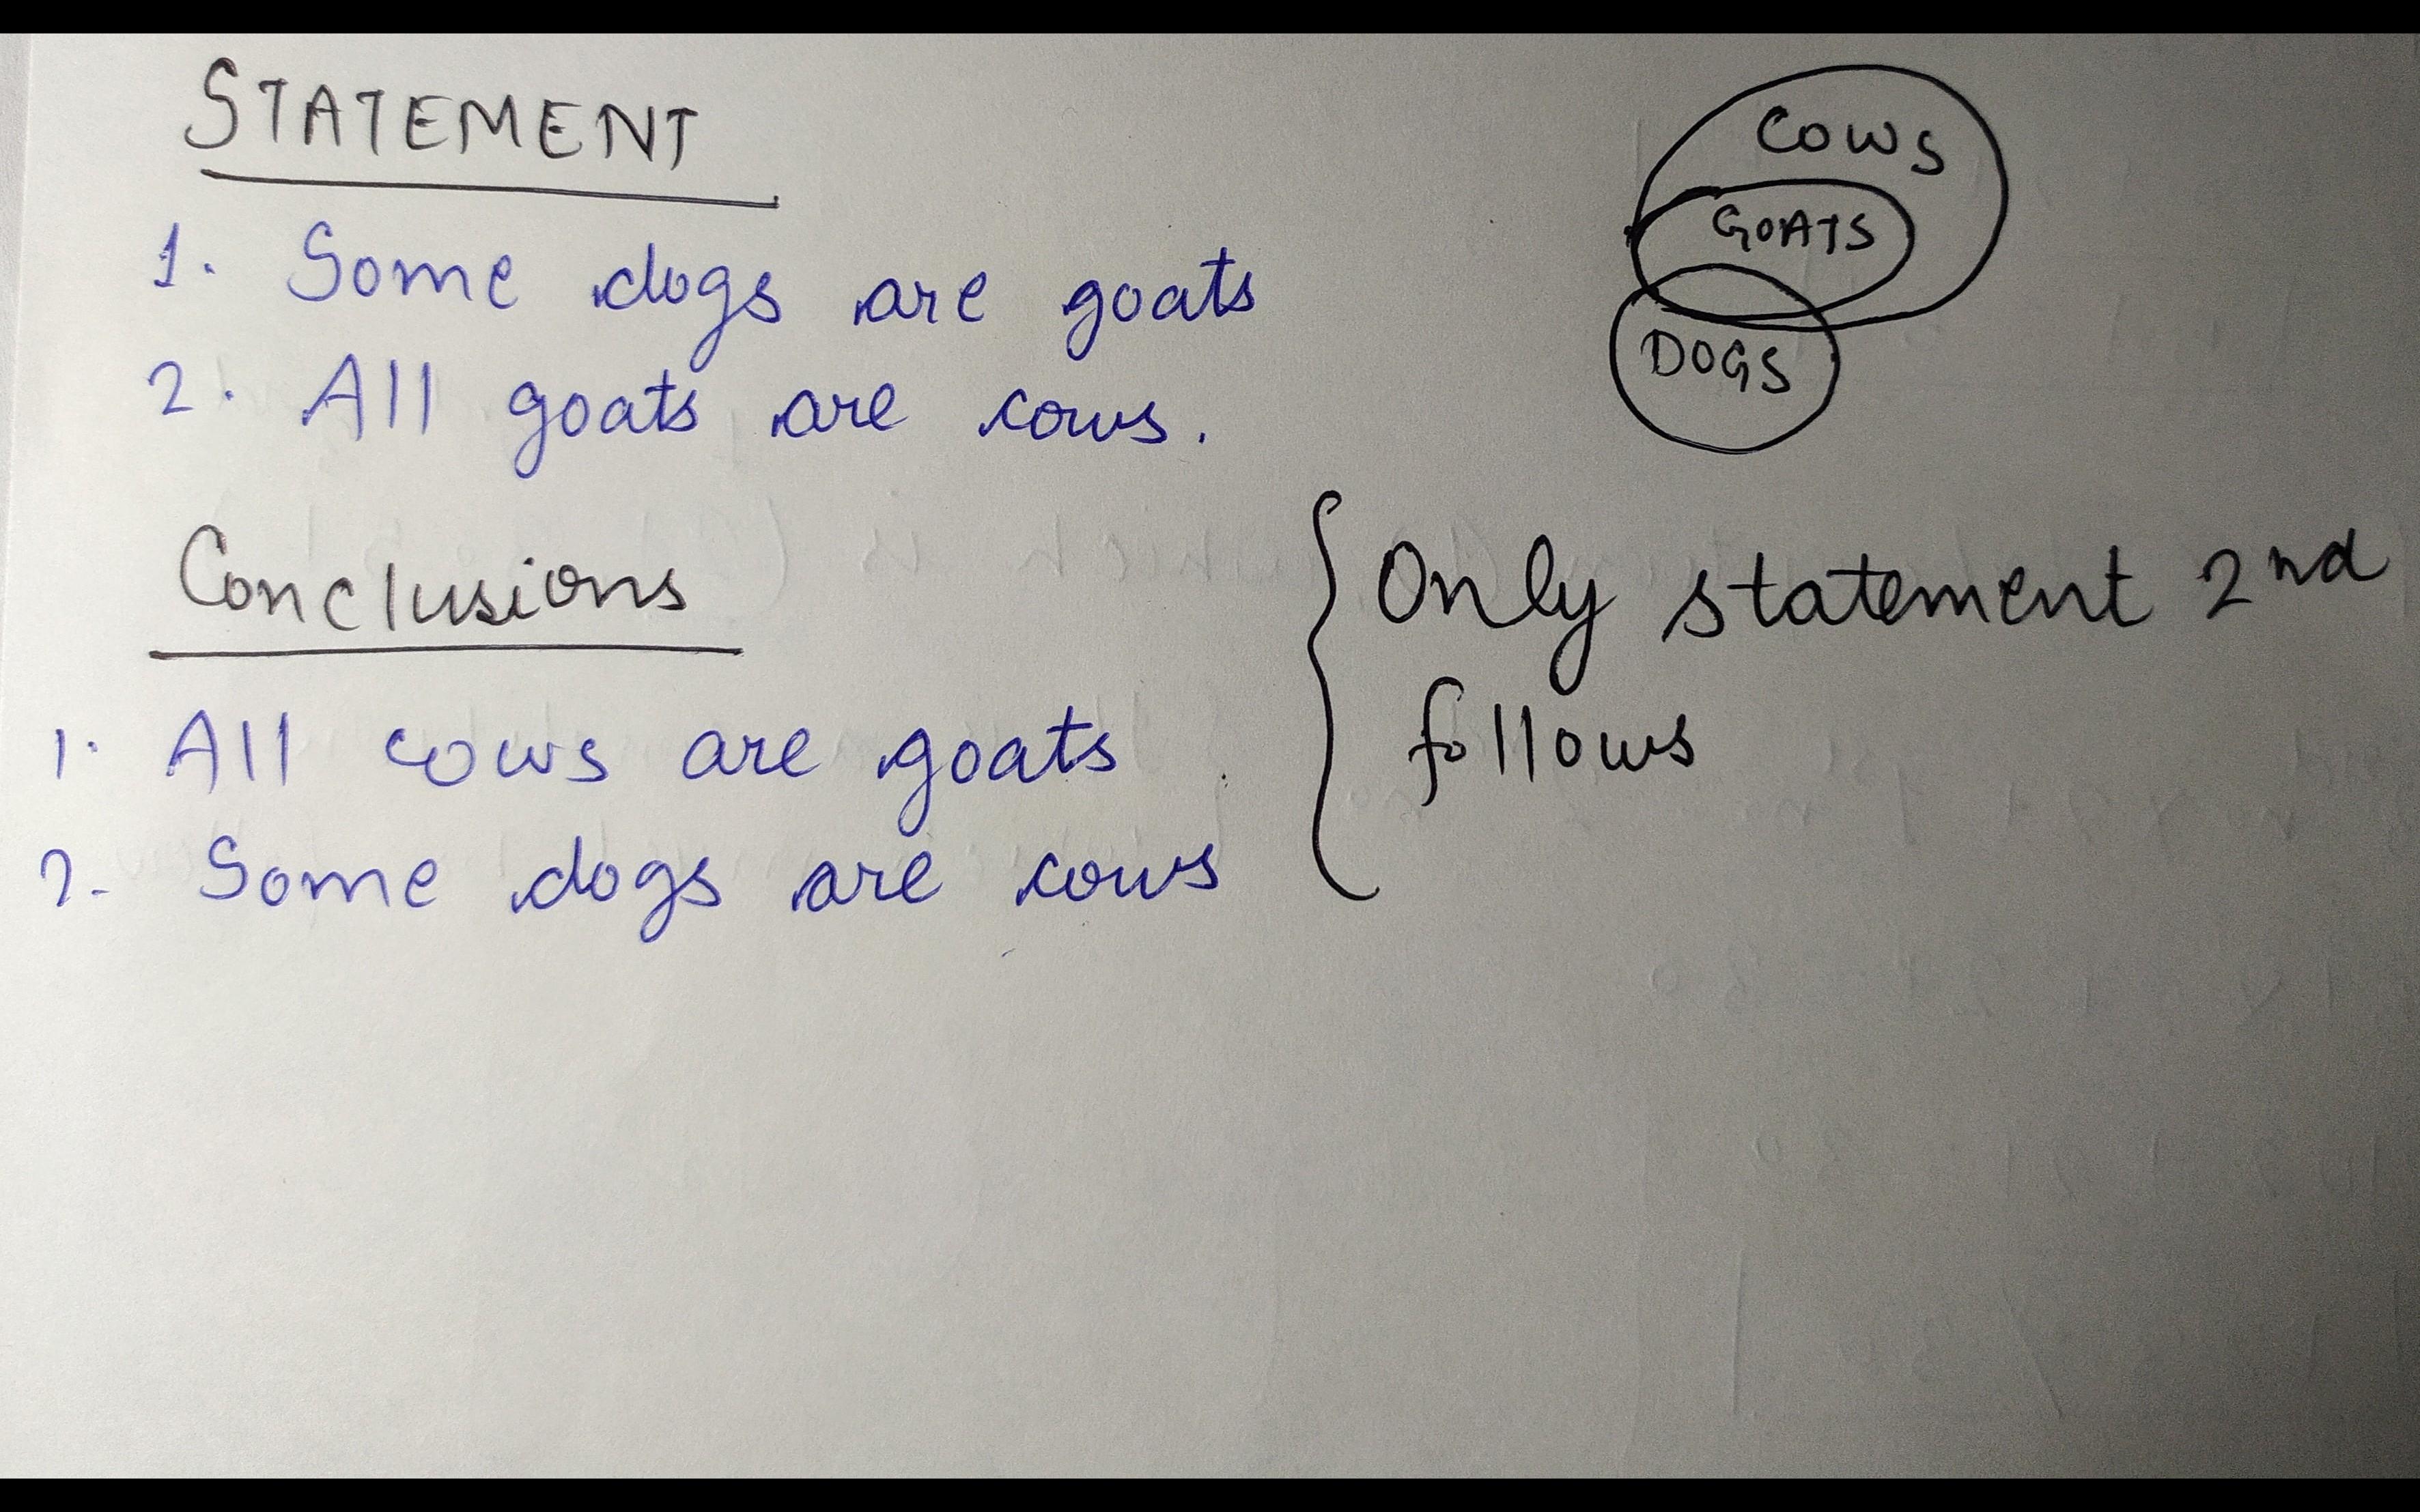 STATEMENT
1. Some dogs are goats
2. All goats are cows.
COWS
GOATS
DOGS
Conclusions
1. All cows are goats
2. Some dogs are cows
Only statement 2nd
follows